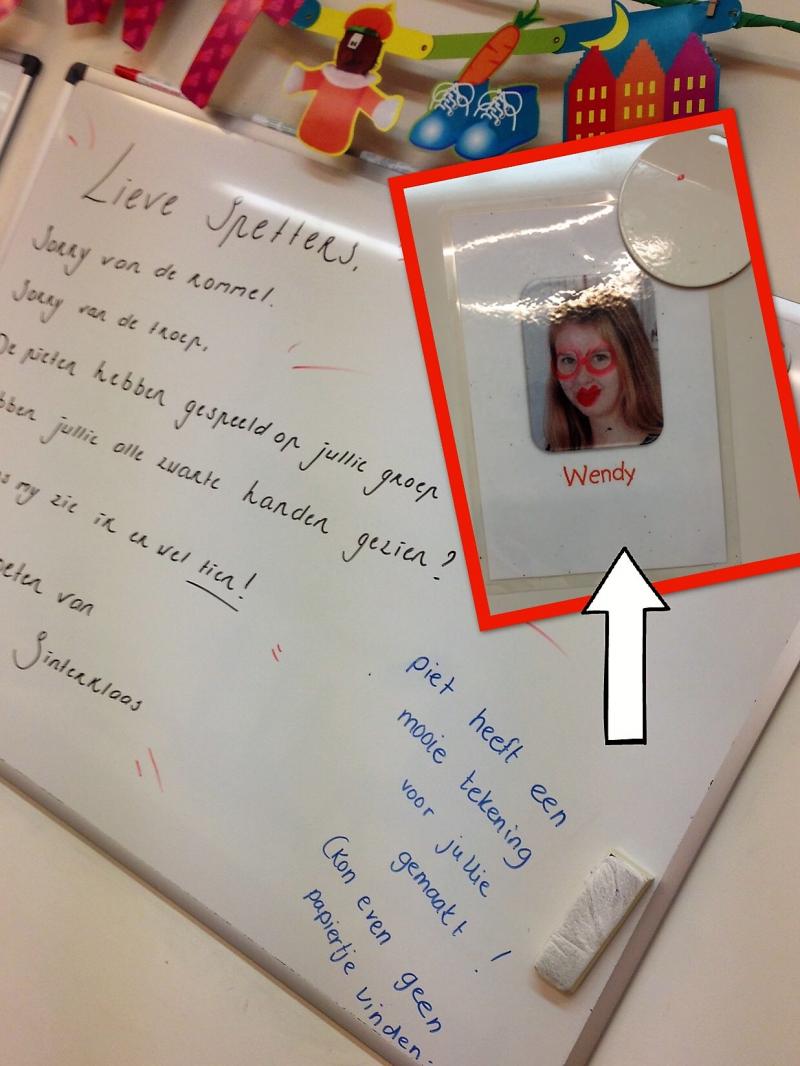 Lieve Spetters,
Sorry van de rommel.
Sorry van de troep,
De pieten hebben gespeeld op jullie groep
bben jullie alle zwarte handen gezien?
s my zie ik er wel tien!
oeten van
Sinterklaas
Wendy
piet heeft een
mooie tekening
voor jullie
gemaakt !
(kon even geen
papiertje vinden.